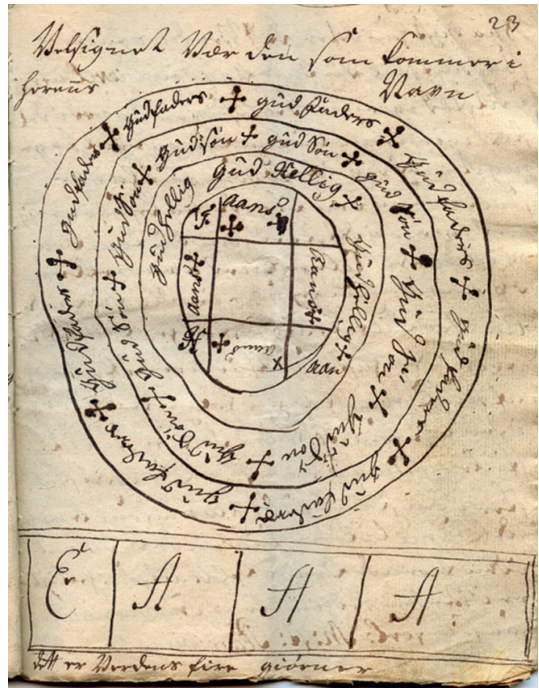 23
Velsignet Vær den som kommer i
herens Navn
gud faders ✢ gud faders ✢ gud faders ✢ gud faders ✢ gud faders ✢ gud faders ✢ gud faders ✢ gud faders ✢
gud Søn ✢ gud Søn ✢ gud Søn ✢ gud Søn ✢ gud Søn ✢ gud Søn ✢
gud Hellig ✢ gud hellig ✢ gud hellig
aand
aand
aand
aand
aan
E A A A
dett er Verdens fire giörner